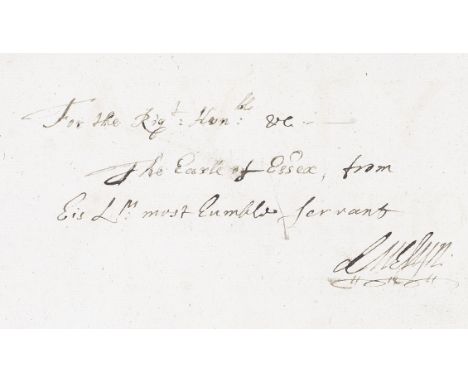 For the Rigt: Honble: &c
The Earle of Essex, from
His Lps most humble servant
JEvelyn: